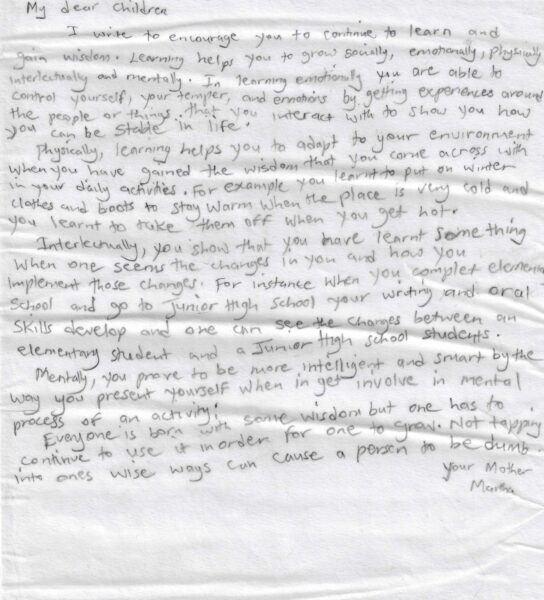 My dear children
I write to encourage you to continue to learn and
gain wisdom. Learning helps you to grow socially, emotionally, physically
interlectually and mentally. In learning emotionally you are able to
control yourself, your temper, and emotions by getting experences around
the people or things that you interact with to show you how
you can be stable in life.
Physically, learning helps you to adapt to your environment
when you have gained the wisdom that you come across with
in your daily activities. For example you learnt to put on winter
clothes and boots to stay warm when the place is very cold and
you learnt to take them off when you get hot.
Interlectually, you show that you have learnt something
when one seems the changes in you and how you
implement those changes. For instance when you complet element
School and go to Junior High School your writing and oral
skills develop and one can see the changes between an
elementary student and a Junior High school students.
Mentally, you prove to be more intelligent and smart by the
way you present yourself when in get involve in mental
process of an activity.
Everyone is born with some wisdom but one has to
continue to use it in order for one to grow. Not tapping
into ones wise ways can cause a person to be dumb.
your Mother
Martha